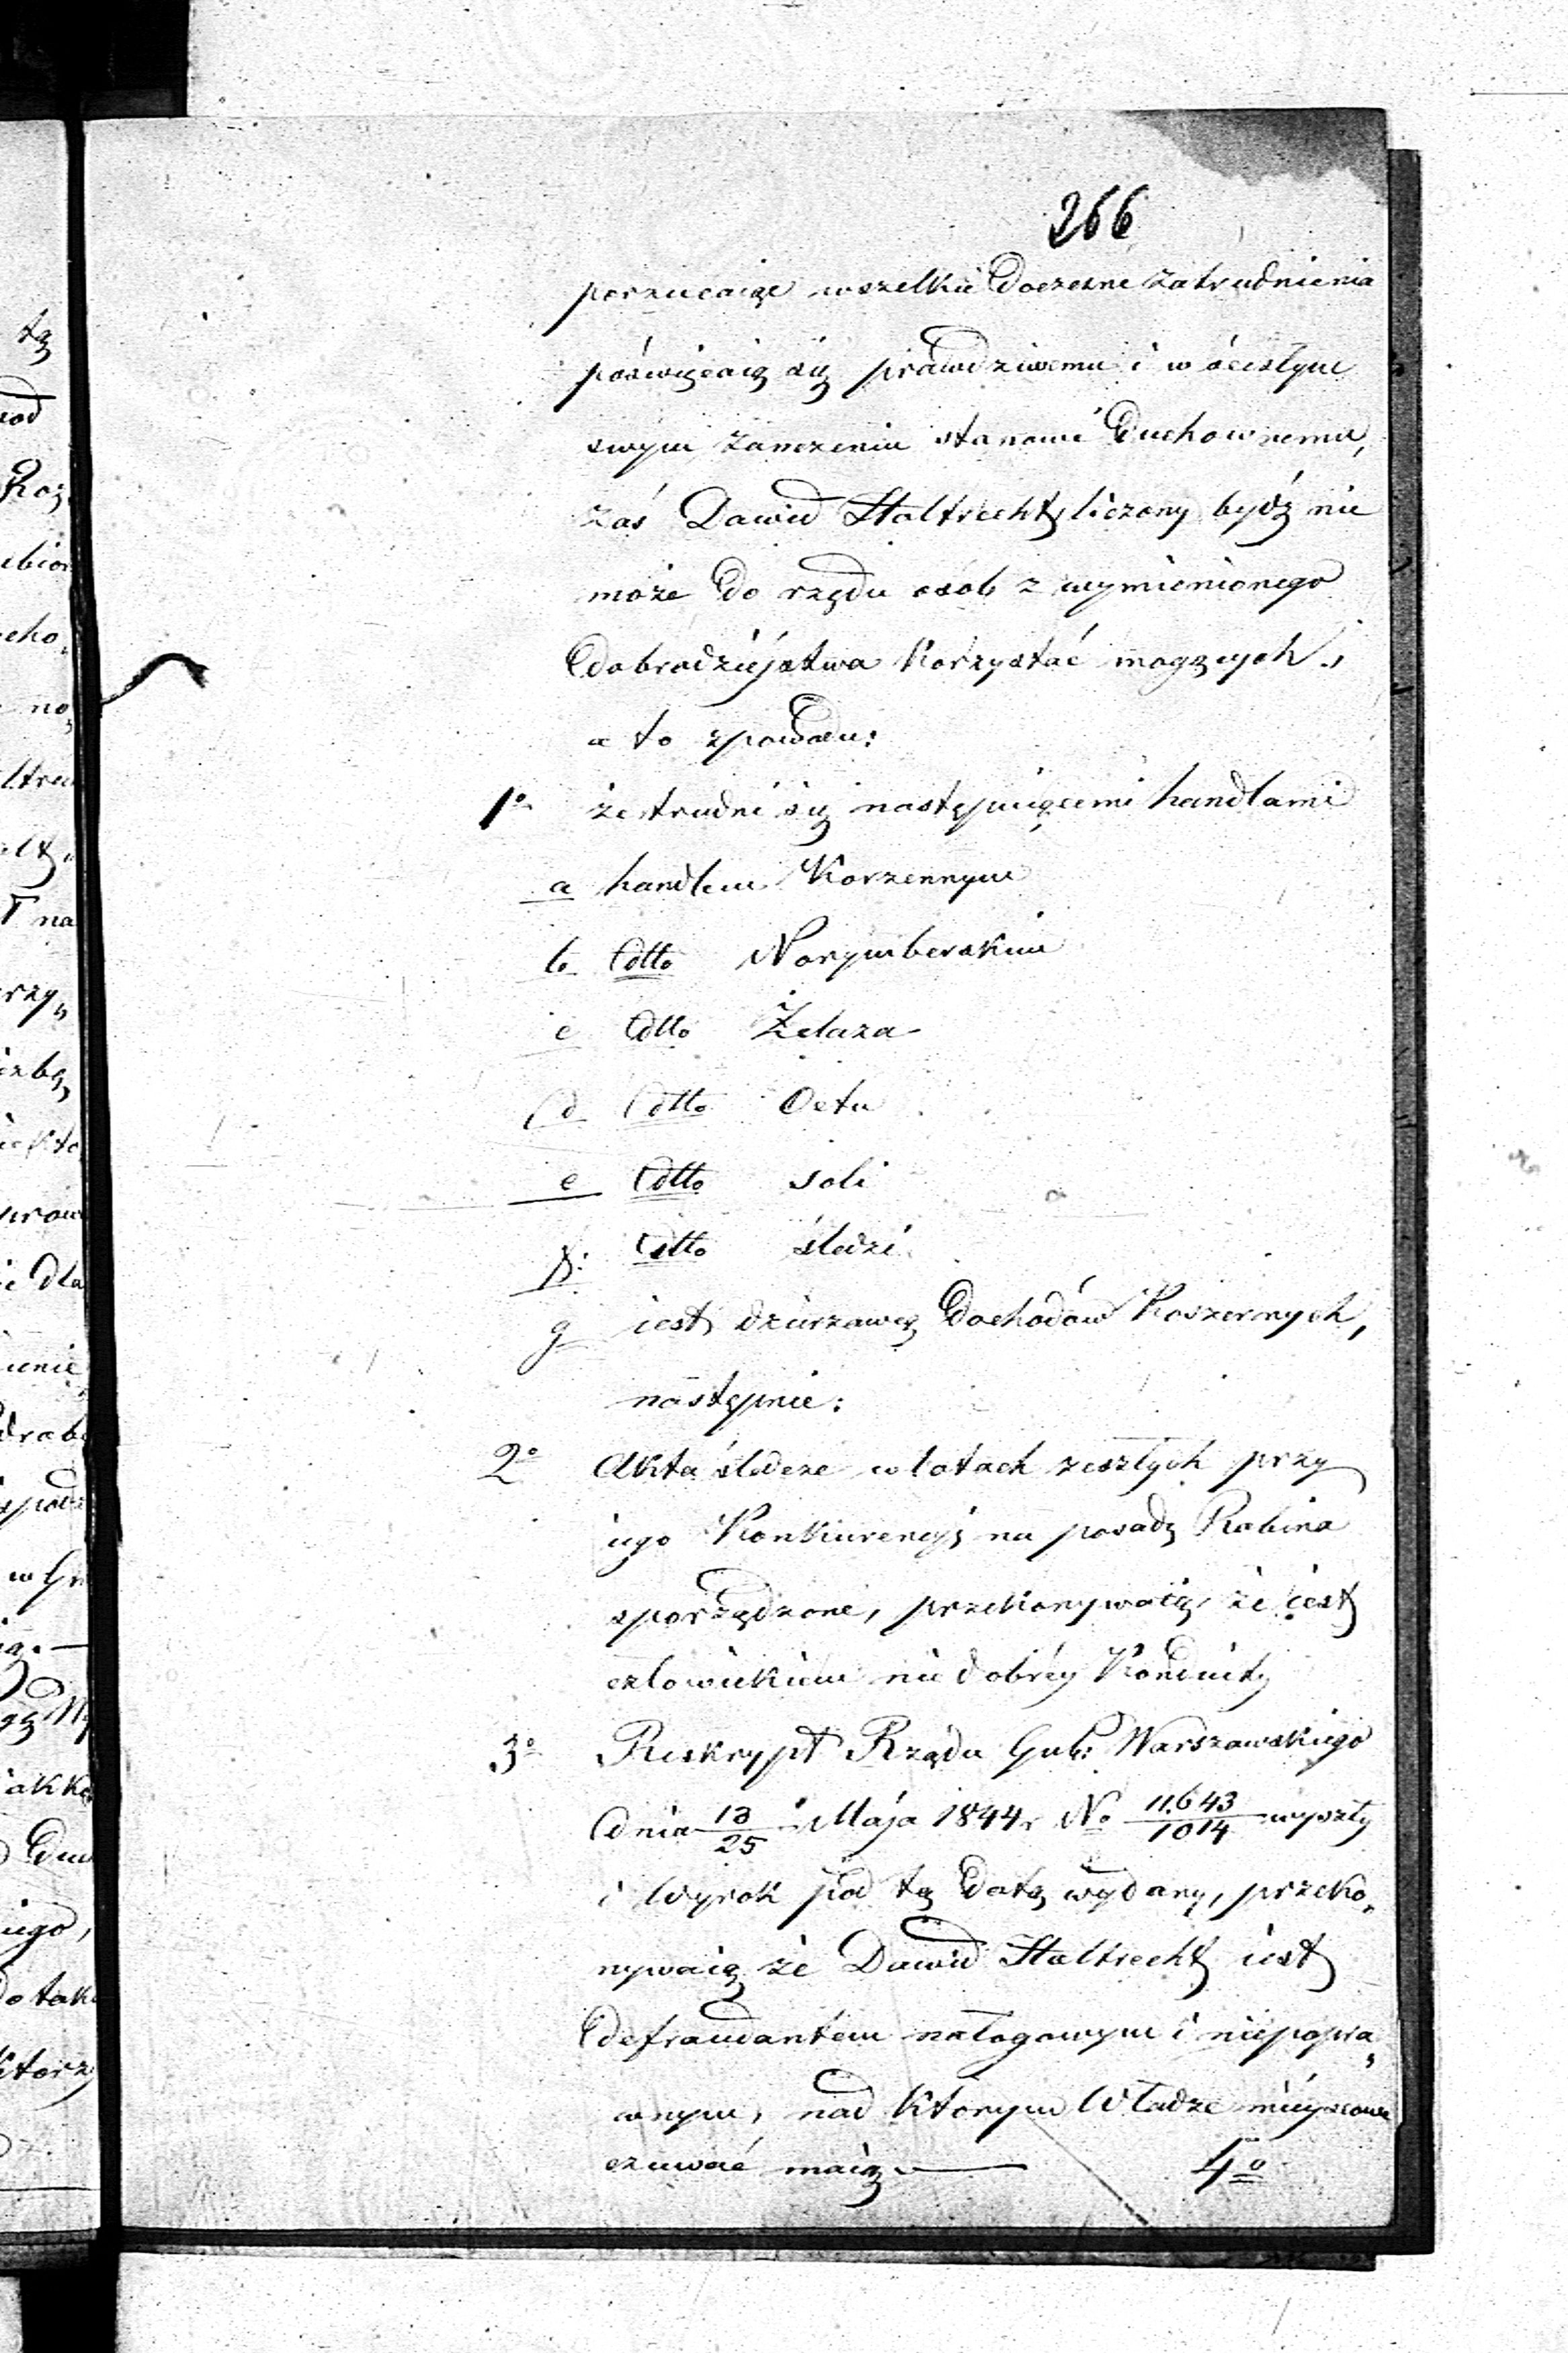 266
porzucaiąc wszelkie doczesne zatrudnienia
poświęcaią się prawdziwemu i w ścisłym
swym znaczeniu stanowi Duchownemu,
zaś Dawid Haltrecht liczony bydź nie
może do rzędu osób z wymienionego
dobrodziejstwa korzystać mogących.,
a to zpowodu:
1o że trudni się następuiącemi handlami
a handlem Korzennym
b dtto Norymberskim
c dtto Żelaza
d dtto Octu
e dtto soli
f. dtto śledzi
g iest dzierzawcą dochodów Koszernych,
następnie:
2o Akta śledcze w latach zeszłych przy
iego Konkurencyi na posadę Rabina
sporządzone, przekonywaią, że iest
człowiekiem nie dobréy Konduity
3o Reskrypt Rządu Gub: Warszawskiego
dnia 13/25 Maja 1844 r No 11.643/1014 wyszły
i Wyrok pod tą datą wydany, przeko„
nywaią że Dawid Haltrecht iest
defraudantem nałogowym i niepopra„
wnym, nad którym Władze mieyscowe
czuwać maią. —
4o
tą
Roz„
no„
na
rzy„
izbą,
dla
w
iego,